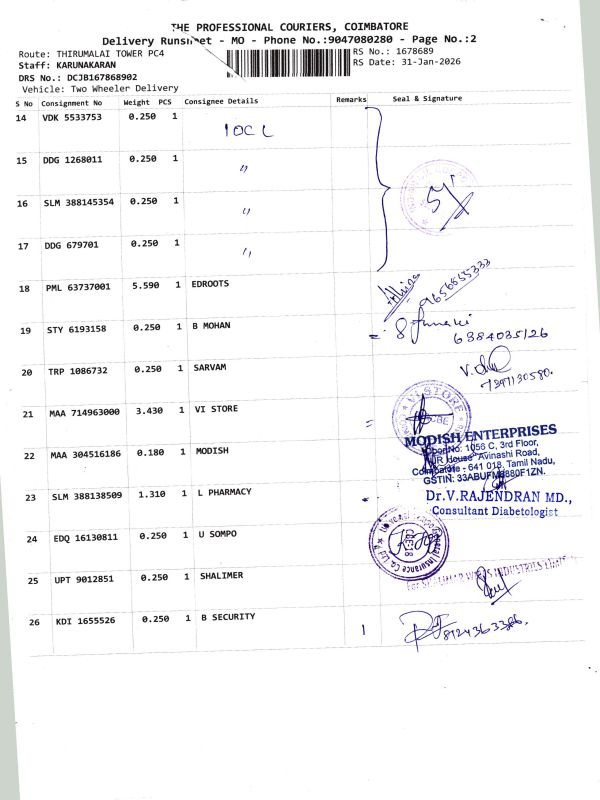 THE PROFESSIONAL COURIERS, COIMBATORE
Delivery Runsheet - MO - Phone No.:9047080280 - Page No.:2
Route: THIRUMALAI TOWER PC4
RS No.: 1678689
Staff: KARUNAKARAN
RS Date: 31-Jan-2026
DRS No.: DCJB167868902
Vehicle: Two Wheeler Delivery
S No Consignment No Weight PCS Consignee Details Remarks Seal & Signature
14 VDK 5533753 0.250 1 IOCL
15 DDG 1268011 0.250 1 "
16 SLM 388145354 0.250 1 "
17 DDG 679701 0.250 1 "
18 PML 63737001 5.590 1 EDROOTS
9656855333
19 STY 6193158 0.250 1 B MOHAN
6384035126
20 TRP 1086732 0.250 1 SARVAM
21 MAA 714963000 3.430 1 VI STORE
VI STORE
22 MAA 304516186 0.180 1 MODISH
MODISH ENTERPRISES
Door No: 1056 C, 3rd Floor,
House" Avinashi Road,
Coimbatore - 641 018. Tamil Nadu,
23 SLM 388138509 1.310 1 L PHARMACY
Dr.V.RAJENDRAN MD.,
Consultant Diabetologist
24 EDQ 16130811 0.250 1 U SOMPO
General Insurance Co. Ltd
25 UPT 9012851 0.250 1 SHALIMER
26 KDI 1655526 0.250 1 B SECURITY